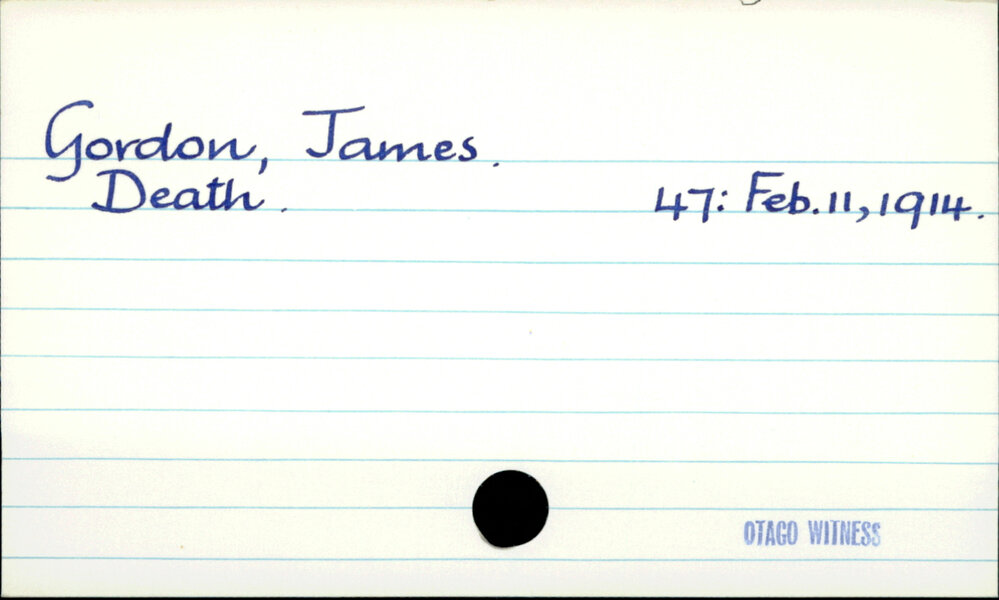 Gordon, James.
Death. 47: Feb. 11, 1914.
OTAGO WITNESS